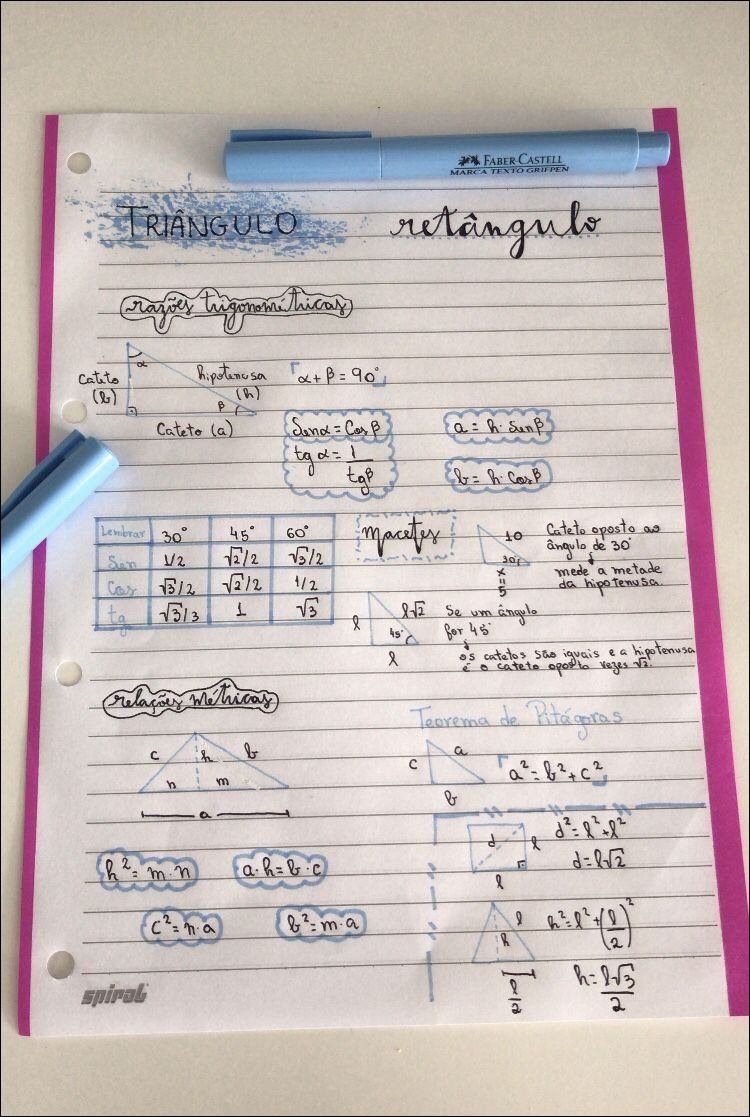 FABER-CASTELL
MARCA TEXTO GRIFPEN
TRIÂNGULO retângulo
razões trigonométricas
α
cateto
(b)
hipotenusa
(h)
β
Cateto (a)
α + β = 90°
Sen α = Cos β
tg α = 1/tg β
a = h · Sen β
b = h · Cos β
Lembrar 30° 45° 60°
Sen 1/2 √2/2 √3/2
Cos √3/2 √2/2 1/2
tg √3/3 1 √3
macetes
10
30°
x
=
5
Cateto oposto ao
ângulo de 30°
mede a metade
da hipotenusa.
l
l√2
45°
l
Se um ângulo
for 45°
os catetos são iguais e a hipotenusa
é o cateto oposto vezes √2.
relações métricas
c h b
n m
a
h² = m · n
a · h = b · c
c² = n · a
b² = m · a
Teorema de Pitágoras
c a
b
a² = b² + c²
d l
l
d² = l² + l²
d = l√2
l
h
l/2
h² = l² + (l/2)²
h = l√3/2
spiral